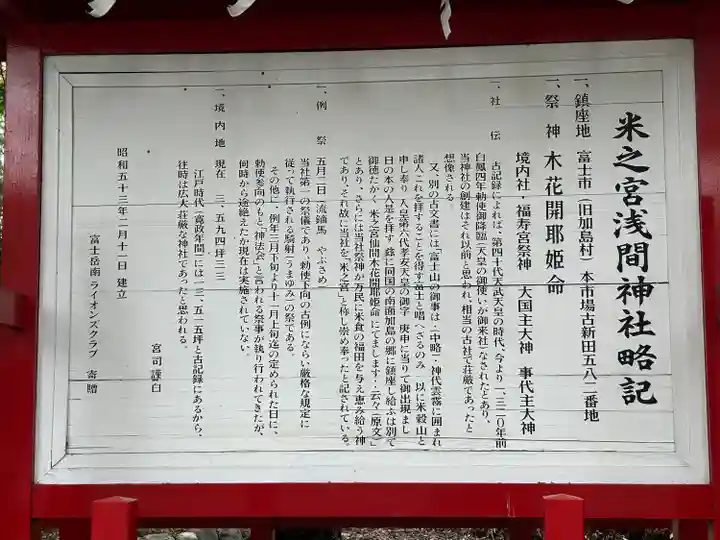 米之宮浅間神社略記
一、鎮座地 富士市(旧加島村) 本市場古新田五八二番地
一、祭神 木花開耶姫命
境内社 福寿宮祭神 大国主大神 事代主大神
一、社伝 古記録によれば、第四十代天武天皇の時代、今より一、三二〇年前
白鳳四年勅使御降臨(天皇の御使いが御来社)なされたとあり、
当神社の創建はそれ以前と思われ、相当の古社で荘厳であったと
想像される。
又、別の古文書には「富士山の御事は…中略…神代雲霧に囲まれ
諸人これを拝することを得ず富士と唱へざるのみ 以に米穀山と
申し奉り 人皇第六代孝安天皇の御字 庚申に当りて御出現まし
日の本の人是を拝す 茲に同国の南面加島の郷に鎮座し給ふは別て
御徳たかく 米之宮仙間木花開耶姫命にてまします…云々(原文)」
とあり、さらには当社祭神が万民に米食の福田を与え恵み給う神
であり、それ故に当社を「米之宮」と称し崇め奉ったと記されている。
一、例祭 五月二日 流鏑馬 やぶさめ
当社第一の祭儀であり、勅使下向の古例にならい厳格な規定に
従って執行される騎射(うまゆみ)の祭である。
その他に、例年三月下旬より十一月上旬迄の定められた日に、
勅使参向のもと「神法会」と言われる祭事が執り行われてきたが、
何時から途絶えたか現在は実施されていない。
一、境内地 現在 三、五九四坪三三
江戸時代(寛政年間)には一三、五一五坪と古記録にあるから、
往時は広大荘厳な神社であったと思われる。
宮司謹白
昭和五十三年二月十一日 建立
富士岳南ライオンズクラブ 寄贈